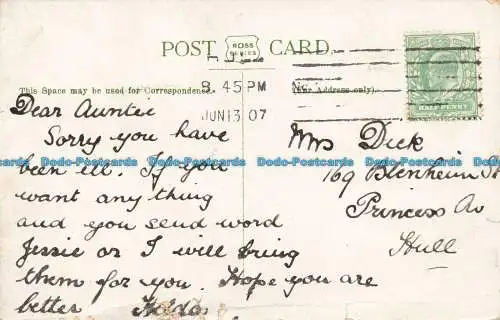 POST CARD.
ROSS
SERIES
This Space may be used for Correspondence.
(For Address only).
8.45 PM
JUN 13 07
HALF PENNY
Dear Auntie
Sorry you have
been ill. If you
want any thing
and you send word
Jessie or I will bring
them for you. Hope you are
better Hilda
Mrs Dick
169 Blenheim St
Princess Av
Hull
Dodo-Postcards Dodo-Postcards Dodo-Postcards Dodo-Postcards Dodo-Postcards Dodo-Postcards